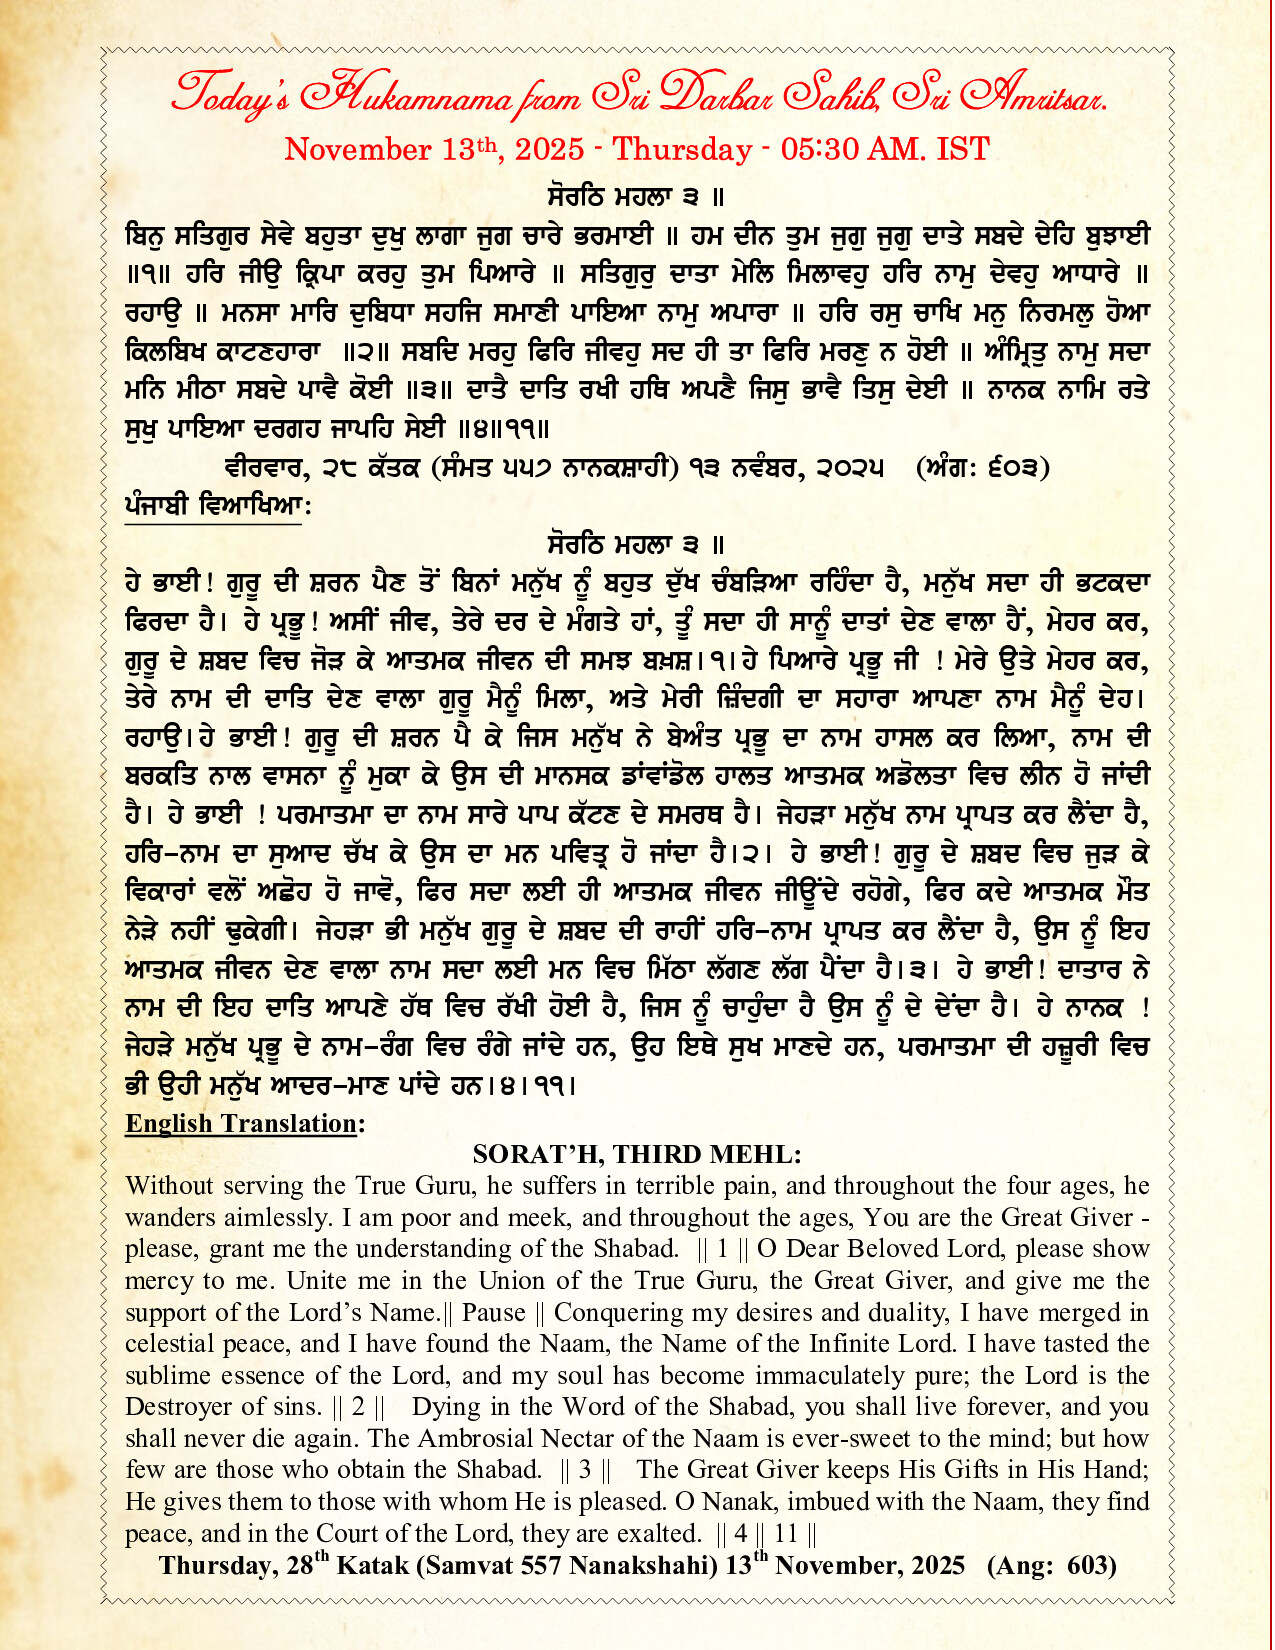 Today's Hukamnama from Sri Darbar Sahib, Sri Amritsar.
November 13th, 2025 - Thursday - 05:30 AM. IST
ਸੋਰਠਿ ਮਹਲਾ ੩ ॥
ਬਿਨੁ ਸਤਿਗੁਰ ਸੇਵੇ ਬਹੁਤਾ ਦੁਖੁ ਲਾਗਾ ਜੁਗ ਚਾਰੇ ਭਰਮਾਈ ॥ ਹਮ ਦੀਨ ਤੁਮ ਜੁਗੁ ਜੁਗੁ ਦਾਤੇ ਸਬਦੇ ਦੇਹਿ ਬੁਝਾਈ
॥੧॥ ਹਰਿ ਜੀਉ ਕ੍ਰਿਪਾ ਕਰਹੁ ਤੁਮ ਪਿਆਰੇ ॥ ਸਤਿਗੁਰੁ ਦਾਤਾ ਮੇਲਿ ਮਿਲਾਵਹੁ ਹਰਿ ਨਾਮੁ ਦੇਵਹੁ ਆਧਾਰੇ ॥
ਰਹਾਉ ॥ ਮਨਸਾ ਮਾਰਿ ਦੁਬਿਧਾ ਸਹਜਿ ਸਮਾਣੀ ਪਾਇਆ ਨਾਮੁ ਅਪਾਰਾ ॥ ਹਰਿ ਰਸੁ ਚਾਖਿ ਮਨੁ ਨਿਰਮਲੁ ਹੋਆ
ਕਿਲਬਿਖ ਕਾਟਣਹਾਰਾ ॥੨॥ ਸਬਦਿ ਮਰਹੁ ਫਿਰਿ ਜੀਵਹੁ ਸਦ ਹੀ ਤਾ ਫਿਰਿ ਮਰਣੁ ਨ ਹੋਈ ॥ ਅੰਮ੍ਰਿਤੁ ਨਾਮੁ ਸਦਾ
ਮਨਿ ਮੀਠਾ ਸਬਦੇ ਪਾਵੈ ਕੋਈ ॥੩॥ ਦਾਤੈ ਦਾਤਿ ਰਖੀ ਹਥਿ ਅਪਣੈ ਜਿਸੁ ਭਾਵੈ ਤਿਸੁ ਦੇਈ ॥ ਨਾਨਕ ਨਾਮਿ ਰਤੇ
ਸੁਖੁ ਪਾਇਆ ਦਰਗਹ ਜਾਪਹਿ ਸੇਈ ॥੪॥੧੧॥
ਵੀਰਵਾਰ, ੨੮ ਕੱਤਕ (ਸੰਮਤ ੫੫੭ ਨਾਨਕਸ਼ਾਹੀ) ੧੩ ਨਵੰਬਰ, ੨੦੨੫ (ਅੰਗ: ੬੦੩)
ਪੰਜਾਬੀ ਵਿਆਖਿਆ:
ਸੋਰਠਿ ਮਹਲਾ ੩ ॥
ਹੇ ਭਾਈ! ਗੁਰੂ ਦੀ ਸ਼ਰਨ ਪੈਣ ਤੋਂ ਬਿਨਾਂ ਮਨੁੱਖ ਨੂੰ ਬਹੁਤ ਦੁੱਖ ਚੰਬੜਿਆ ਰਹਿੰਦਾ ਹੈ, ਮਨੁੱਖ ਸਦਾ ਹੀ ਭਟਕਦਾ
ਫਿਰਦਾ ਹੈ। ਹੇ ਪ੍ਰਭੂ! ਅਸੀਂ ਜੀਵ, ਤੇਰੇ ਦਰ ਦੇ ਮੰਗਤੇ ਹਾਂ, ਤੂੰ ਸਦਾ ਹੀ ਸਾਨੂੰ ਦਾਤਾਂ ਦੇਣ ਵਾਲਾ ਹੈਂ, ਮੇਹਰ ਕਰ,
ਗੁਰੂ ਦੇ ਸ਼ਬਦ ਵਿਚ ਜੋੜ ਕੇ ਆਤਮਕ ਜੀਵਨ ਦੀ ਸਮਝ ਬਖ਼ਸ਼।੧।ਹੇ ਪਿਆਰੇ ਪ੍ਰਭੂ ਜੀ ! ਮੇਰੇ ਉਤੇ ਮੇਹਰ ਕਰ,
ਤੇਰੇ ਨਾਮ ਦੀ ਦਾਤਿ ਦੇਣ ਵਾਲਾ ਗੁਰੂ ਮੈਨੂੰ ਮਿਲਾ, ਅਤੇ ਮੇਰੀ ਜ਼ਿੰਦਗੀ ਦਾ ਸਹਾਰਾ ਆਪਣਾ ਨਾਮ ਮੈਨੂੰ ਦੇਹ।
ਰਹਾਉ।ਹੇ ਭਾਈ! ਗੁਰੂ ਦੀ ਸ਼ਰਨ ਪੈ ਕੇ ਜਿਸ ਮਨੁੱਖ ਨੇ ਬੇਅੰਤ ਪ੍ਰਭੂ ਦਾ ਨਾਮ ਹਾਸਲ ਕਰ ਲਿਆ, ਨਾਮ ਦੀ
ਬਰਕਤਿ ਨਾਲ ਵਾਸਨਾ ਨੂੰ ਮੁਕਾ ਕੇ ਉਸ ਦੀ ਮਾਨਸਕ ਡਾਂਵਾਂਡੋਲ ਹਾਲਤ ਆਤਮਕ ਅਡੋਲਤਾ ਵਿਚ ਲੀਨ ਹੋ ਜਾਂਦੀ
ਹੈ। ਹੇ ਭਾਈ ! ਪਰਮਾਤਮਾ ਦਾ ਨਾਮ ਸਾਰੇ ਪਾਪ ਕੱਟਣ ਦੇ ਸਮਰਥ ਹੈ। ਜੇਹੜਾ ਮਨੁੱਖ ਨਾਮ ਪ੍ਰਾਪਤ ਕਰ ਲੈਂਦਾ ਹੈ,
ਹਰਿ-ਨਾਮ ਦਾ ਸੁਆਦ ਚੱਖ ਕੇ ਉਸ ਦਾ ਮਨ ਪਵਿਤ੍ਰ ਹੋ ਜਾਂਦਾ ਹੈ।੨। ਹੇ ਭਾਈ! ਗੁਰੂ ਦੇ ਸ਼ਬਦ ਵਿਚ ਜੁੜ ਕੇ
ਵਿਕਾਰਾਂ ਵਲੋਂ ਅਛੋਹ ਹੋ ਜਾਵੋ, ਫਿਰ ਸਦਾ ਲਈ ਹੀ ਆਤਮਕ ਜੀਵਨ ਜੀਊਂਦੇ ਰਹੋਗੇ, ਫਿਰ ਕਦੇ ਆਤਮਕ ਮੌਤ
ਨੇੜੇ ਨਹੀਂ ਢੁਕੇਗੀ। ਜੇਹੜਾ ਭੀ ਮਨੁੱਖ ਗੁਰੂ ਦੇ ਸ਼ਬਦ ਦੀ ਰਾਹੀਂ ਹਰਿ-ਨਾਮ ਪ੍ਰਾਪਤ ਕਰ ਲੈਂਦਾ ਹੈ, ਉਸ ਨੂੰ ਇਹ
ਆਤਮਕ ਜੀਵਨ ਦੇਣ ਵਾਲਾ ਨਾਮ ਸਦਾ ਲਈ ਮਨ ਵਿਚ ਮਿੱਠਾ ਲੱਗਣ ਲੱਗ ਪੈਂਦਾ ਹੈ।੩। ਹੇ ਭਾਈ! ਦਾਤਾਰ ਨੇ
ਨਾਮ ਦੀ ਇਹ ਦਾਤਿ ਆਪਣੇ ਹੱਥ ਵਿਚ ਰੱਖੀ ਹੋਈ ਹੈ, ਜਿਸ ਨੂੰ ਚਾਹੁੰਦਾ ਹੈ ਉਸ ਨੂੰ ਦੇ ਦੇਂਦਾ ਹੈ। ਹੇ ਨਾਨਕ !
ਜੇਹੜੇ ਮਨੁੱਖ ਪ੍ਰਭੂ ਦੇ ਨਾਮ-ਰੰਗ ਵਿਚ ਰੰਗੇ ਜਾਂਦੇ ਹਨ, ਉਹ ਇਥੇ ਸੁਖ ਮਾਣਦੇ ਹਨ, ਪਰਮਾਤਮਾ ਦੀ ਹਜ਼ੂਰੀ ਵਿਚ
ਭੀ ਉਹੀ ਮਨੁੱਖ ਆਦਰ-ਮਾਣ ਪਾਂਦੇ ਹਨ।੪।੧੧।
English Translation:
SORAT'H, THIRD MEHL:
Without serving the True Guru, he suffers in terrible pain, and throughout the four ages, he
wanders aimlessly. I am poor and meek, and throughout the ages, You are the Great Giver -
please, grant me the understanding of the Shabad. || 1 || O Dear Beloved Lord, please show
mercy to me. Unite me in the Union of the True Guru, the Great Giver, and give me the
support of the Lord's Name.|| Pause || Conquering my desires and duality, I have merged in
celestial peace, and I have found the Naam, the Name of the Infinite Lord. I have tasted the
sublime essence of the Lord, and my soul has become immaculately pure; the Lord is the
Destroyer of sins. || 2 || Dying in the Word of the Shabad, you shall live forever, and you
shall never die again. The Ambrosial Nectar of the Naam is ever-sweet to the mind; but how
few are those who obtain the Shabad. || 3 || The Great Giver keeps His Gifts in His Hand;
He gives them to those with whom He is pleased. O Nanak, imbued with the Naam, they find
peace, and in the Court of the Lord, they are exalted. || 4 || 11 ||
Thursday, 28th Katak (Samvat 557 Nanakshahi) 13th November, 2025 (Ang: 603)